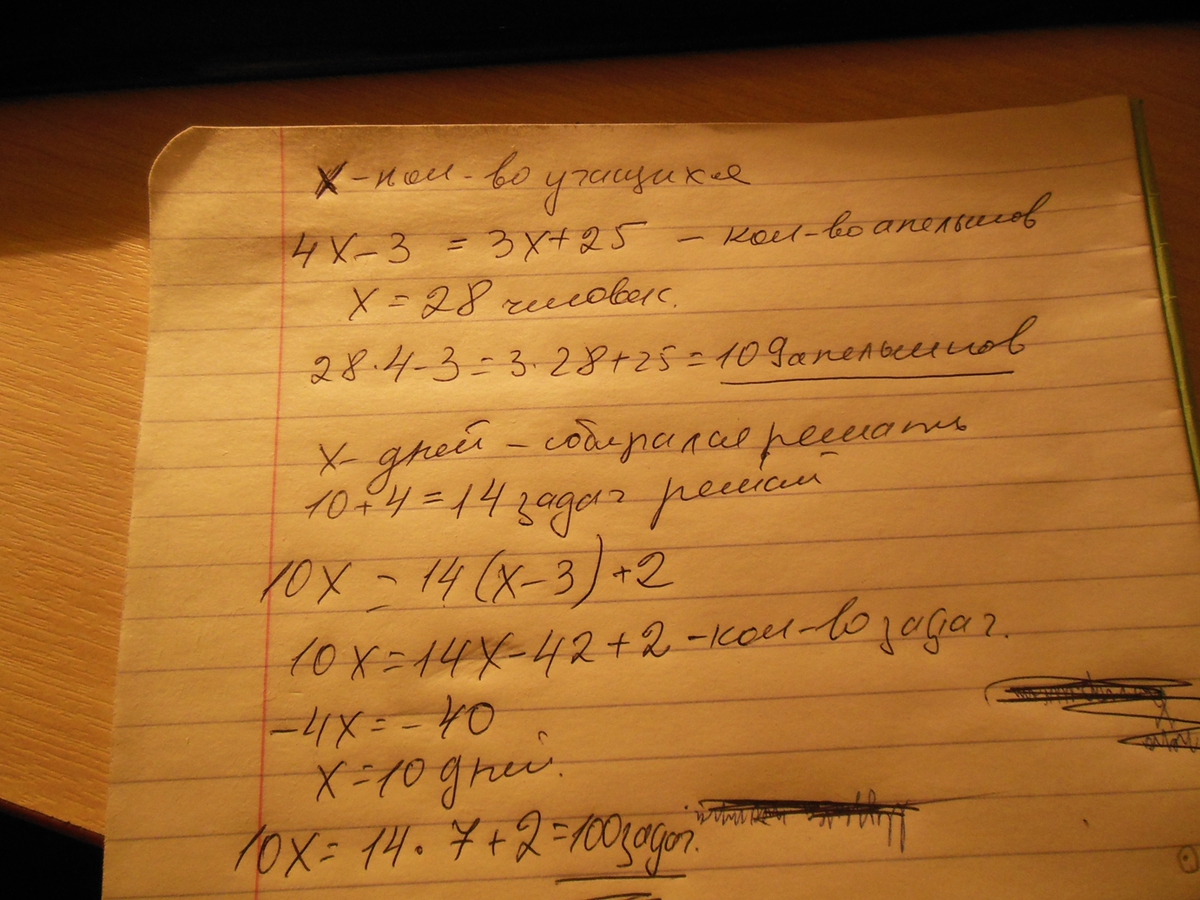 x - кол-во учащихся
4x - 3 = 3x + 25 - кол-во апельсинов
x = 28 человек.
28·4-3 = 3·28+25 = 109 апельсинов
x - дней - собирался решать
10 + 4 = 14 задач решал
10x = 14(x-3)+2
10x = 14x - 42 + 2 - кол-во задач.
-4x = -40
x = 10 дней.
10x = 14·7+2 = 100 задач.